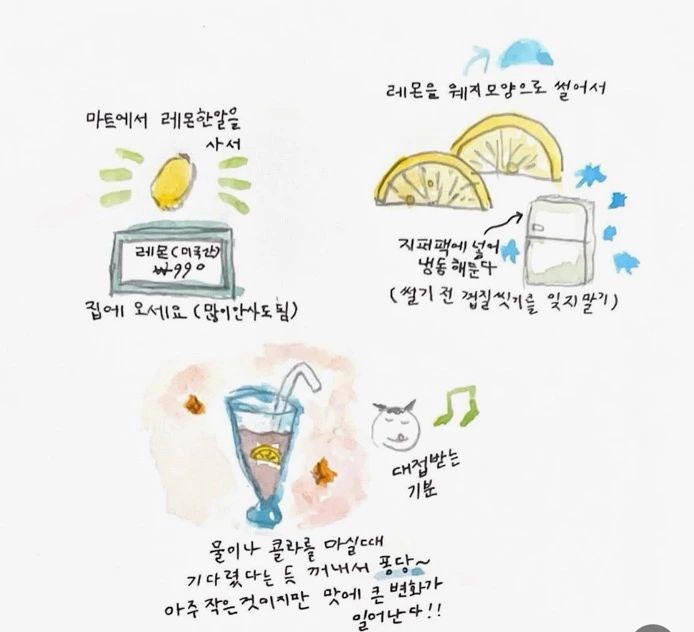 마트에서 레몬한알을
사서
레몬(미국산)
₩990
집에 오세요 (많이안사도 됨)
레몬을 웨지모양으로 썰어서
지퍼팩에 넣어
냉동해둔다
(썰기 전 껍질씻기를 잊지말기)
대접받는
기분
물이나 콜라를 마실때
기다렸다는 듯 꺼내서 퐁당~
아주 작은것이지만 맛에 큰 변화가
일어난다!!